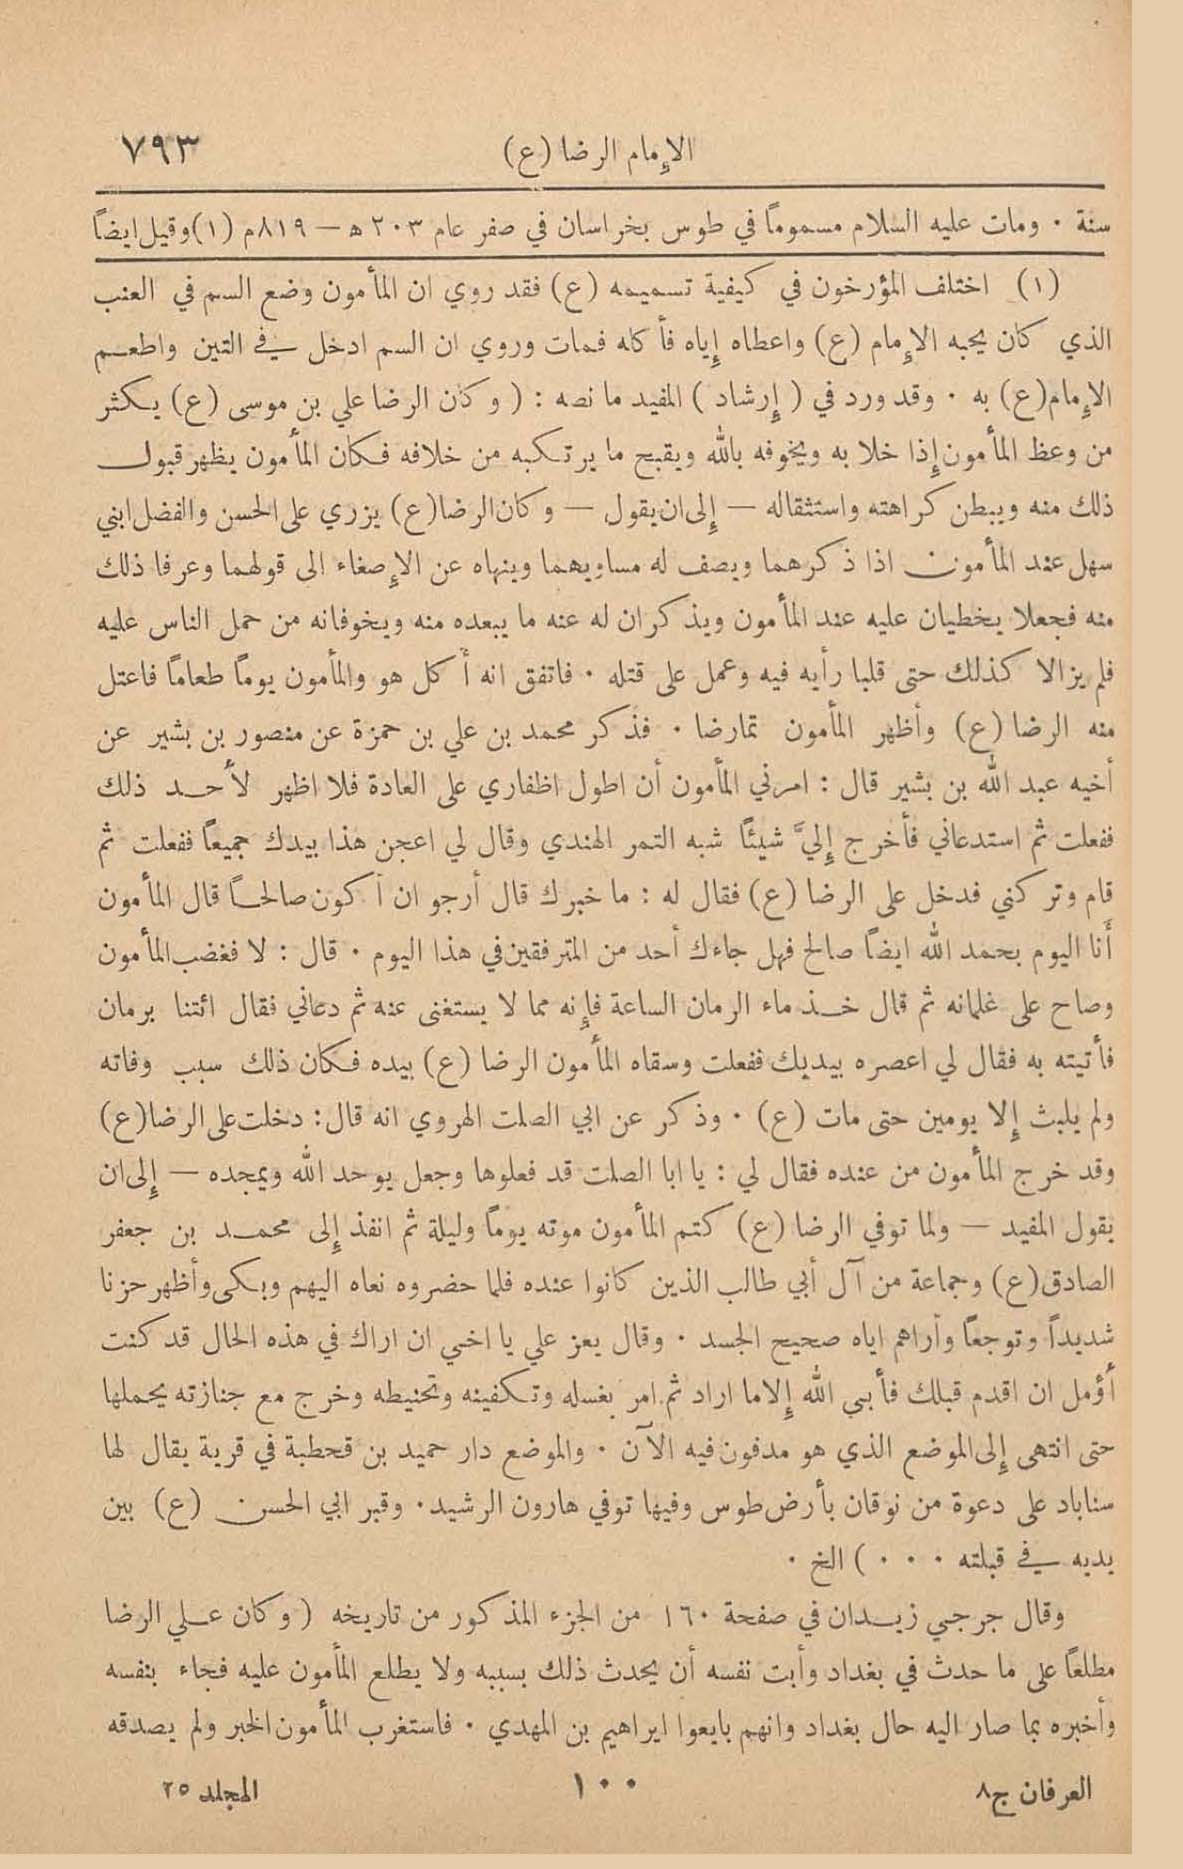 الإمام الرضا (ع) ٧٩٣
سنة ٠ ومات عليه السلام مسموماً في طوس بخراسان في صفر عام ٢٠٣ ه — ٨١٩م (١) وقيل ايضاً
(١) اختلف المؤرخون في كيفية تسميمه (ع) فقد روي ان المأمون وضع السم في العنب
الذي كان يحبه الإمام (ع) واعطاه إياه فأكله فمات وروي ان السم ادخل في التين واطعم
الإمام (ع) به ٠ وقد ورد في ( إرشاد ) المفيد ما نصه : ( وكان الرضا علي بن موسى (ع) يكثر
من وعظ المأمون إذا خلا به ويخوفه بالله ويقبح ما يرتكبه من خلافه فكان المأمون يظهر قبول
ذلك منه ويبطن كراهته واستثقاله — إلى ان يقول — وكان الرضا (ع) يزري على الحسن والفضل ابني
سهل عند المأمون اذا ذكرهما ويصف له مساويهما وينهاه عن الإصغاء الى قولهما وعرفا ذلك
منه فجعلا يخطيان عليه عند المأمون ويذكران له عنه ما يبعده منه ويخوفانه من حمل الناس عليه
فلم يزالا كذلك حتى قلبا رأيه فيه وعمل على قتله ٠ فاتفق انه أكل هو والمأمون يوماً طعاماً فاعتل
منه الرضا (ع) وأظهر المأمون تمارضا ٠ فذكر محمد بن علي بن حمزة عن منصور بن بشير عن
أخيه عبد الله بن بشير قال : امرني المأمون أن اطول اظفاري على العادة فلا اظهر لأحد ذلك
ففعلت ثم استدعاني فأخرج إليَّ شيئاً شبه التمر الهندي وقال لي اعجن هذا بيدك جميعاً ففعلت ثم
قام وتركني فدخل على الرضا (ع) فقال له : ما خبرك قال أرجو ان أكون صالحاً قال المأمون
أنا اليوم بحمد الله ايضاً صالح فهل جاءك أحد من المترفقين في هذا اليوم ٠ قال : لا فغضب المأمون
وصاح على غلمانه ثم قال خذ ماء الرمان الساعة فإنه مما لا يستغنى عنه ثم دعاني فقال ائتنا برمان
فأتيته به فقال لي اعصره بيديك ففعلت وسقاه المأمون الرضا (ع) بيده فكان ذلك سبب وفاته
ولم يلبث إلا يومين حتى مات (ع) ٠ وذكر عن ابي الصلت الهروي انه قال : دخلت على الرضا (ع)
وقد خرج المأمون من عنده فقال لي : يا ابا الصلت قد فعلوها وجعل يوحد الله ويمجده — إلى ان
يقول المفيد — ولما توفي الرضا (ع) كتم المأمون موته يوماً وليلة ثم انفذ إلى محمد بن جعفر
الصادق (ع) وجماعة من آل أبي طالب الذين كانوا عنده فلما حضروه نعاه اليهم وبكى وأظهر حزنا
شديداً وتوجعاً وأراهم اياه صحيح الجسد ٠ وقال يعز علي يا اخي ان اراك في هذه الحال قد كنت
أؤمل ان اقدم قبلك فأبى الله إلا ما اراد ثم امر بغسله وتكفينه وتحنيطه وخرج مع جنازته يحملها
حتى انتهى إلى الموضع الذي هو مدفون فيه الآن ٠ والموضع دار حميد بن قحطبة في قرية يقال لها
سناباد على دعوة من نوقان بأرض طوس وفيها توفي هارون الرشيد ٠ وقبر ابي الحسن (ع) بين
يديه في قبلته ٠ ٠ ٠ ) الخ ٠
وقال جرجي زيدان في صفحة ١٦٠ من الجزء المذكور من تاريخه ( وكان علي الرضا
مطلعاً على ما حدث في بغداد وأبت نفسه أن يحدث ذلك بسببه ولا يطلع المأمون عليه فجاء بنفسه
وأخبره بما صار اليه حال بغداد وانهم بايعوا ابراهيم بن المهدي ٠ فاستغرب المأمون الخبر ولم يصدقه
العرفان ج٨ ١٠٠ المجلد ٢٥